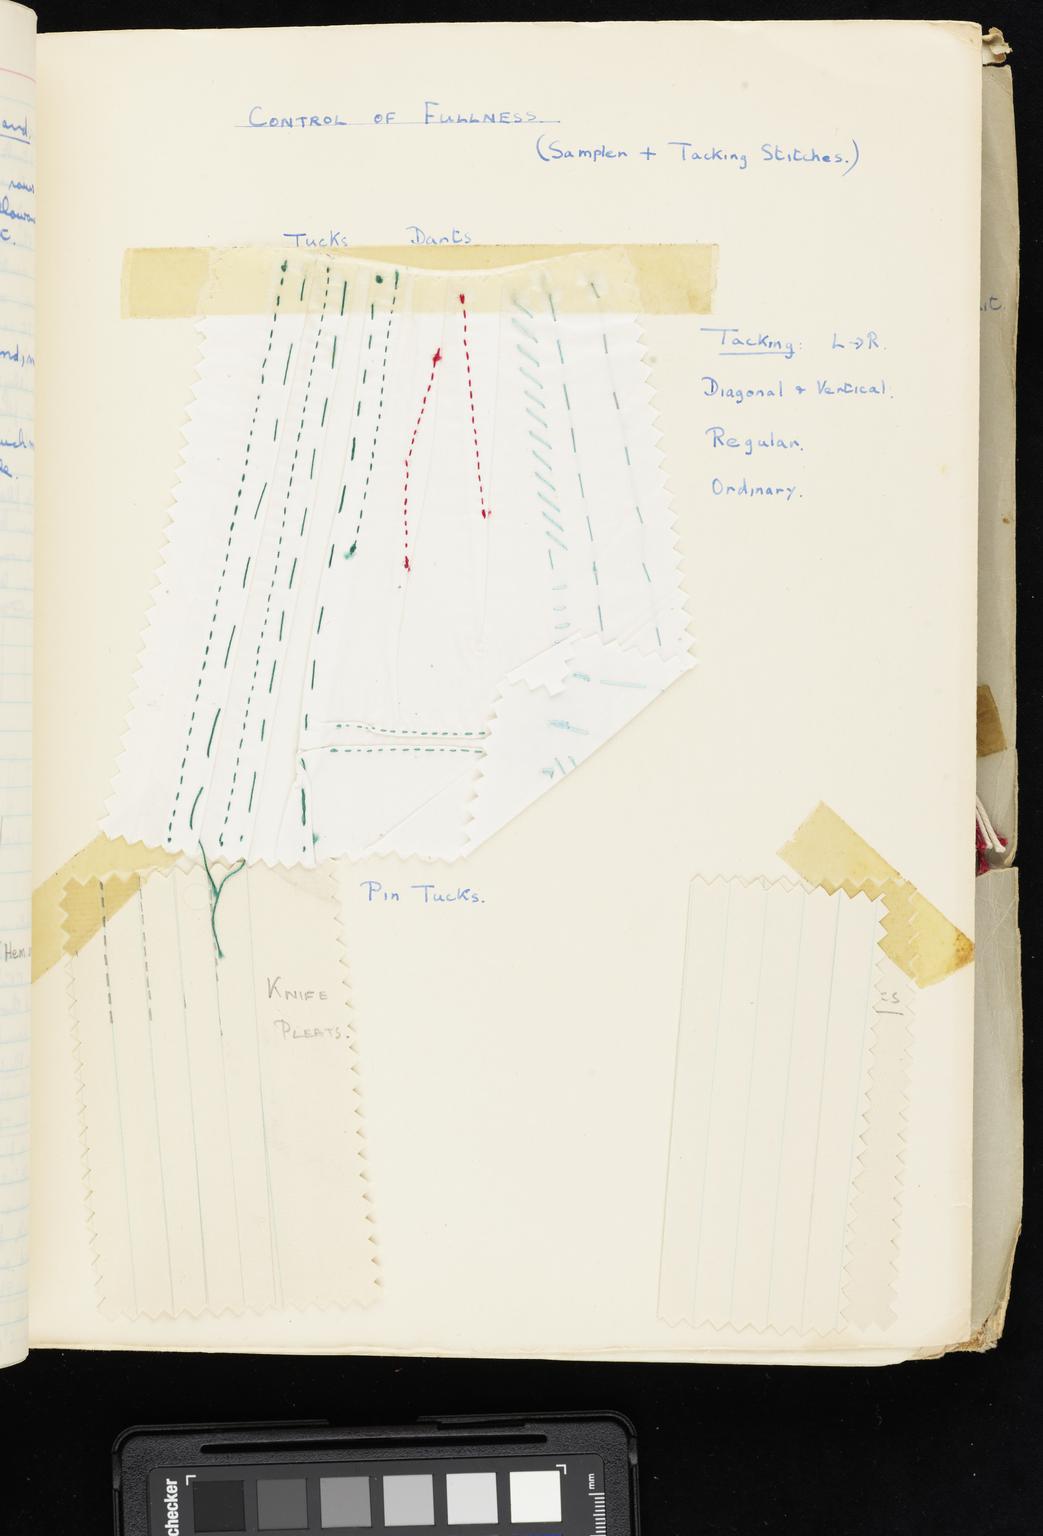 CONTROL OF FULLNESS.
(Sampler + Tacking Stitches.)
Tucks Darts
Tacking: L→R.
Diagonal & Vertical.
Regular.
Ordinary.
Pin Tucks.
KNIFE
PLEATS.
ES
and,
C.
Hem
it.
checker
mm